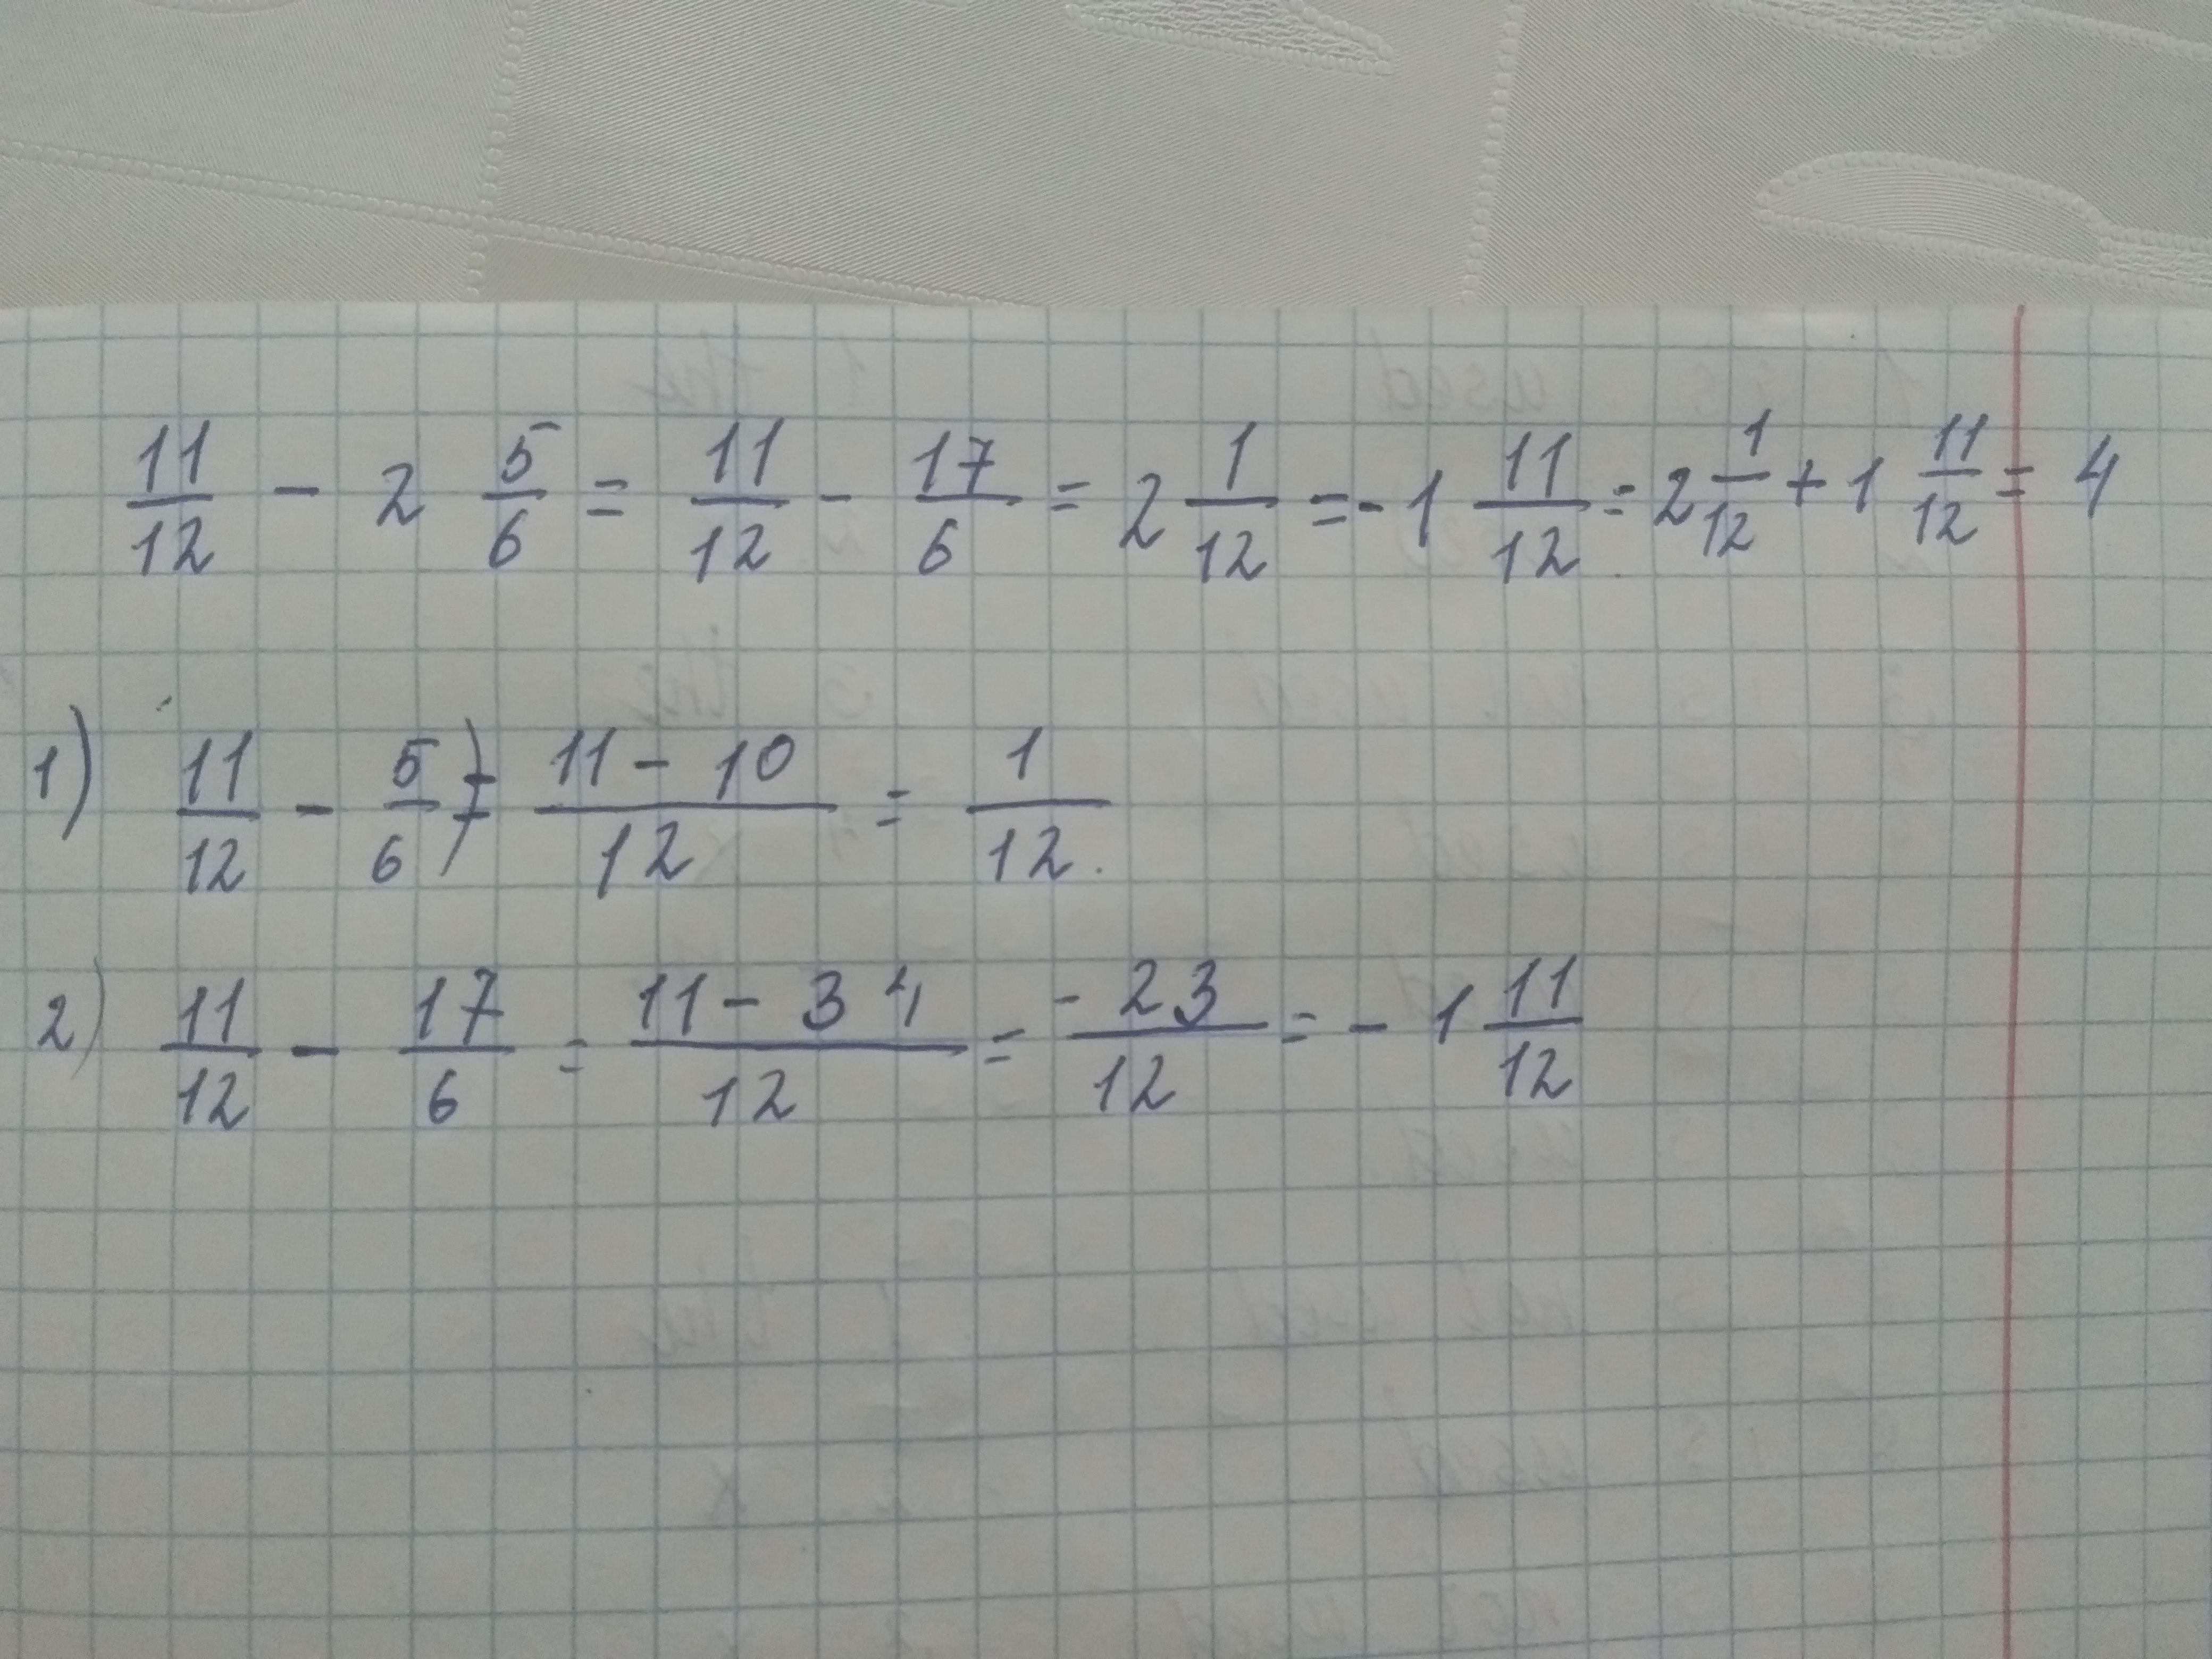 11/12 - 2 5/6 = 11/12 - 17/6 = 2 1/12 = - 1 11/12 = 2 1/12 + 1 11/12 = 4
1) 11/12 - 5/6 ) = 11 - 10/12 = 1/12.
2) 11/12 - 17/6 = 11 - 34/12 = - 23/12 = - 1 11/12